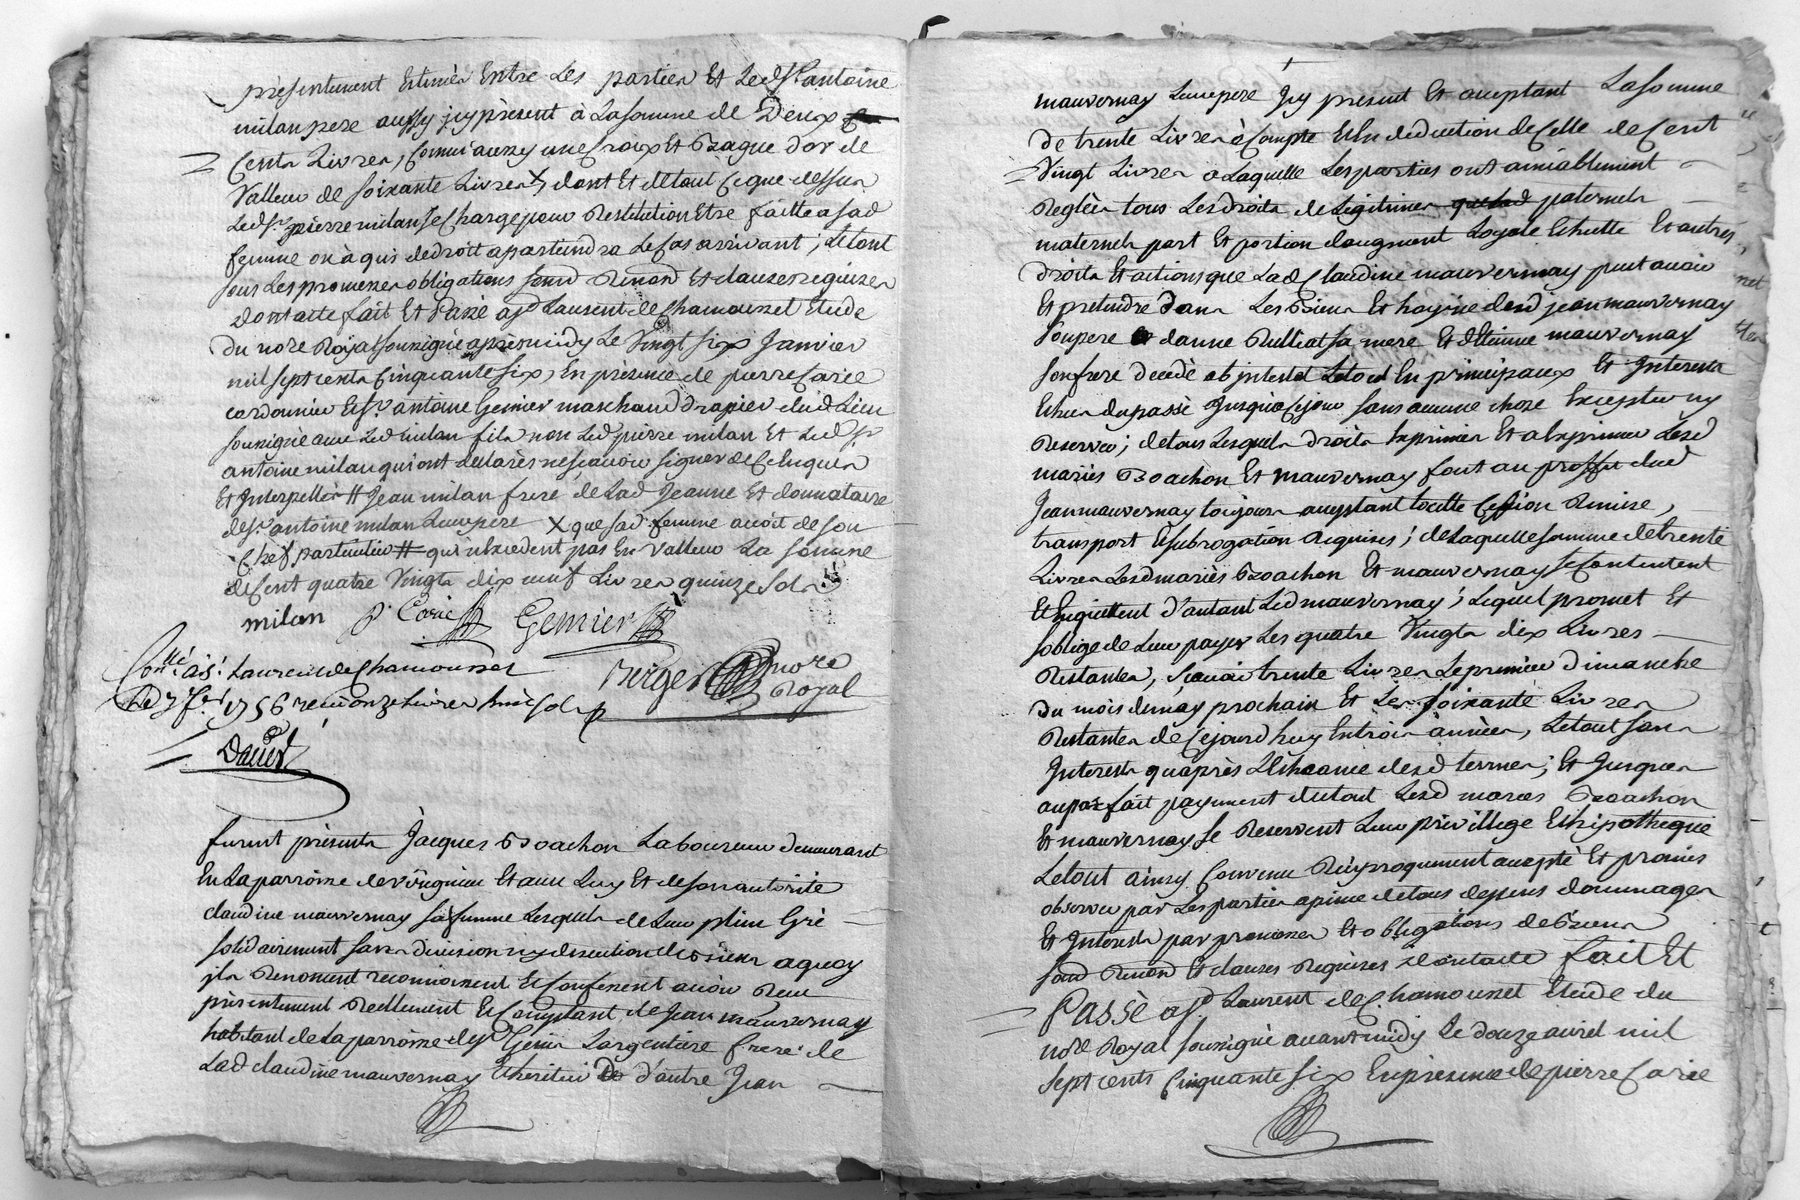 présentement Estimés Entre Les parties Et Ledt Sr antoine
milan pere aussy icy présent à La somme de Deux
Cents Livres, comm'aussy une Croix Et Bague d'or de
Valleur de soixante Livres X, dont Et de tout ce que dessus
Ledt Sr pierre milan se charge pour Restitution Etre faitte a sad
femme ou à qui de droit apartiendra Le Cas arrivant; Le tout
sous Les promesses obligations soud Renond Et clauses requises
dont acte fait Et Passé a St Laurent de Chamousset Etude
du nore Royal soussigné après midy Le Vingt six Janvier
mil sept cents Cinquante six, En presence de pierre Carié
cordonnier Et Sr antoine Genier marchand drapier dud Lieu
soussignés avec Led milan fils non Led pierre milan Et Led Sr
antoine milan qui ont declarés ne scavoir signer de ce Enquis
Et Interpellés # Jean milan frere de Lad Jeanne Et donnataire
de Sr antoine milan Leur pere X que sad femme avoit de son
Chef particulier # qui n'excedent pas En valleur La somme
de Cent quatre Vingts dix neuf Livres quinze sols
milan P. Carié Genier
Conllé a St Laurent de Chamousset
Le 7 fer 1756 recu onze Livres huit sols
Berger nore
Royal
David
furent présents Jacques Boachon Laboureur demeurant
En La parroisse de virignieu Et avec Luy Et de son autorité
claudine mauvernay sa femme Lesquels de Leur plein Gré
solidairement sans division ny discution de biens a quoy
ils Renoncent reconnoissent Et Confessent avoir Receu
présentement Reellement Et Comptant de Jean mauvernay
habitant de La parroisse de St Genis Largentiere frere de
Lad claudine mauvernay Et heritier de d'autre Jean
mauvernay Leur pere Icy present Et acceptant La somme
de trente Livres à Compte Et En deduction de Celle de Cent
Vingt Livres a Laquelle Les parties ont amiablement
Reglés tous Les droits de Legitimes paternels
maternels part Et portion daugment Loyale Echutte Et autres
droits Et actions que Lad Claudine mauvernay peut avoir
Et pretendre dans Les Biens Et hoyrie dud jean mauvernay
son pere danne Rulliat sa mere Et d'Etienne mauvernay
son frere decedé ab intestat Le tout En principaux Et Interests
Echus du passé Jusqu'a Cejour sans aucune chose Excepter ny
Reserver; de tous Lesquels droits Exprimés Et a Exprimer Lesd
mariés Boachon Et mauvernay font au proffit dud
Jean mauvernay toujours acceptant toutte Cession Remise,
transport Et subrogation Requises; de Laquelle somme de trente
Livres Lesd mariés Boachon Et mauvernay se Contentent
Et En quittent d'autant Led mauvernay; Lequel promet Et
s'oblige de Leur payer Les quatre Vingts dix Livres
Restantes, scavoir trente Livres Le premier dimanche
du mois de may prochain Et Les soixante Livres
Restantes de Cejourd'huy En trois années, Le tout sans
Interests qu'après L'Echeance desd termes; Et Jusques
au parfait payement du tout Lesd mariés Boachon
Et mauvernay se Reservent Leur privillege Et hipotheque
Le tout ainsy Convenu Reciproquement accepté Et promis
observer par Les parties a peine de tous depens dommages
Et Interests par promesses Et obligations de Biens
soud Renond Et clauses Requises dont acte fait Et
Passé a St Laurent de Chamousset Etude du
nore Royal soussigné avant midy Le douze avril mil
sept cents Cinquante six En presence de pierre Carié